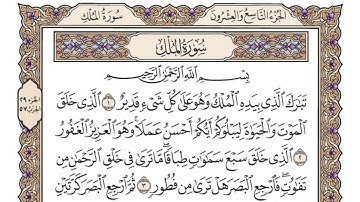 سُورَةُ المُلْكِ
الجُزْءُ التَّاسِعُ وَالعِشْرُونَ
سُورَةُ المُلْكِ
بِسْمِ ٱللَّهِ ٱلرَّحْمَٰنِ ٱلرَّحِيمِ
تَبَٰرَكَ ٱلَّذِى بِيَدِهِ ٱلْمُلْكُ وَهُوَ عَلَىٰ كُلِّ شَىْءٍ قَدِيرٌ ١ ٱلَّذِى خَلَقَ
ٱلْمَوْتَ وَٱلْحَيَوٰةَ لِيَبْلُوَكُمْ أَيُّكُمْ أَحْسَنُ عَمَلًا ۚ وَهُوَ ٱلْعَزِيزُ ٱلْغَفُورُ
٢ ٱلَّذِى خَلَقَ سَبْعَ سَمَٰوَٰتٍ طِبَاقًا ۖ مَّا تَرَىٰ فِى خَلْقِ ٱلرَّحْمَٰنِ مِن
تَفَٰوُتٍ ۖ فَٱرْجِعِ ٱلْبَصَرَ هَلْ تَرَىٰ مِن فُطُورٍ ٣ ثُمَّ ٱرْجِعِ ٱلْبَصَرَ كَرَّتَيْنِ
الجزء ٢٩
الحزب ٥٧